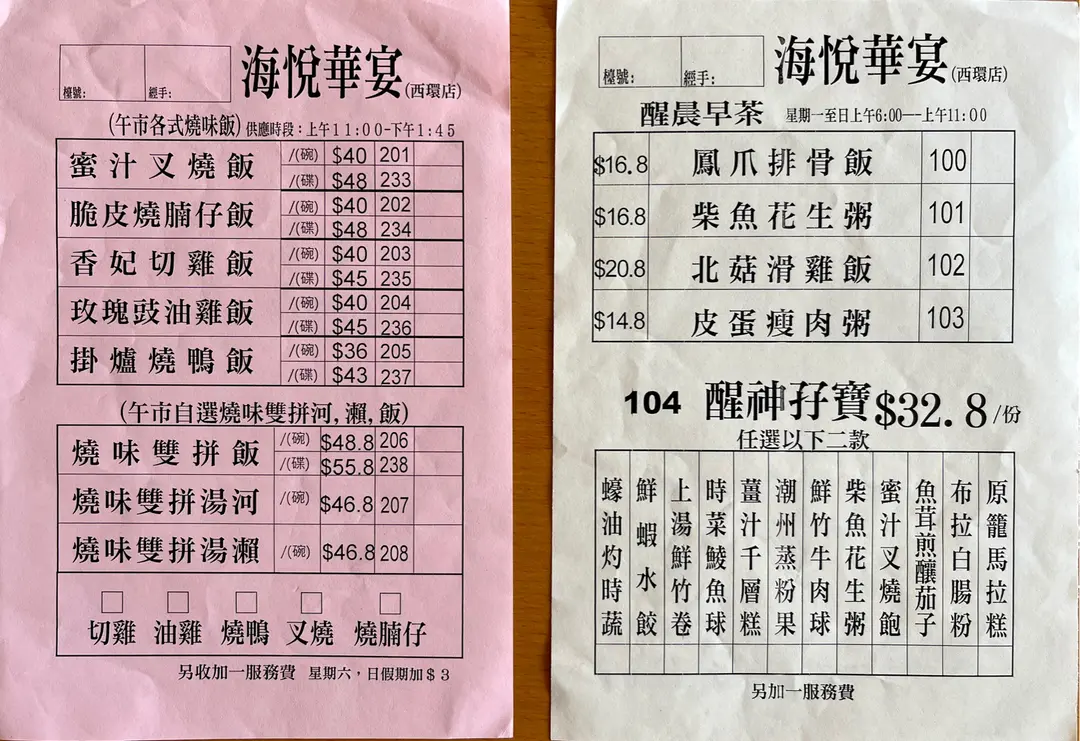 檯號:
經手:
海悅華宴(西環店)
(午市各式燒味飯) 供應時段:上午11:00-下午1:45
蜜汁叉燒飯 /(碗) $40 201
/(碟) $48 233
脆皮燒腩仔飯 /(碗) $40 202
/(碟) $48 234
香妃切雞飯 /(碗) $40 203
/(碟) $45 235
玫瑰豉油雞飯 /(碗) $40 204
/(碟) $45 236
掛爐燒鴨飯 /(碗) $36 205
/(碟) $43 237
(午市自選燒味雙拼河,瀨,飯)
燒味雙拼飯 /(碗) $48.8 206
/(碟) $55.8 238
燒味雙拼湯河 /(碗) $46.8 207
燒味雙拼湯瀨 /(碗) $46.8 208
□ □ □ □ □
切雞 油雞 燒鴨 叉燒 燒腩仔
另收加一服務費 星期六,日假期加$3
檯號:
經手:
海悅華宴(西環店)
醒晨早茶 星期一至日上午6:00-–上午11:00
$16.8 鳳爪排骨飯 100
$16.8 柴魚花生粥 101
$20.8 北菇滑雞飯 102
$14.8 皮蛋瘦肉粥 103
104 醒神孖寶$32.8/份
任選以下二款
蠔油灼時蔬
鮮蝦水餃
上湯鮮竹卷
時菜鯪魚球
薑汁千層糕
潮州蒸粉果
鮮竹牛肉球
柴魚花生粥
蜜汁叉燒飽
魚茸煎釀茄子
布拉白腸粉
原籠馬拉糕
另加一服務費